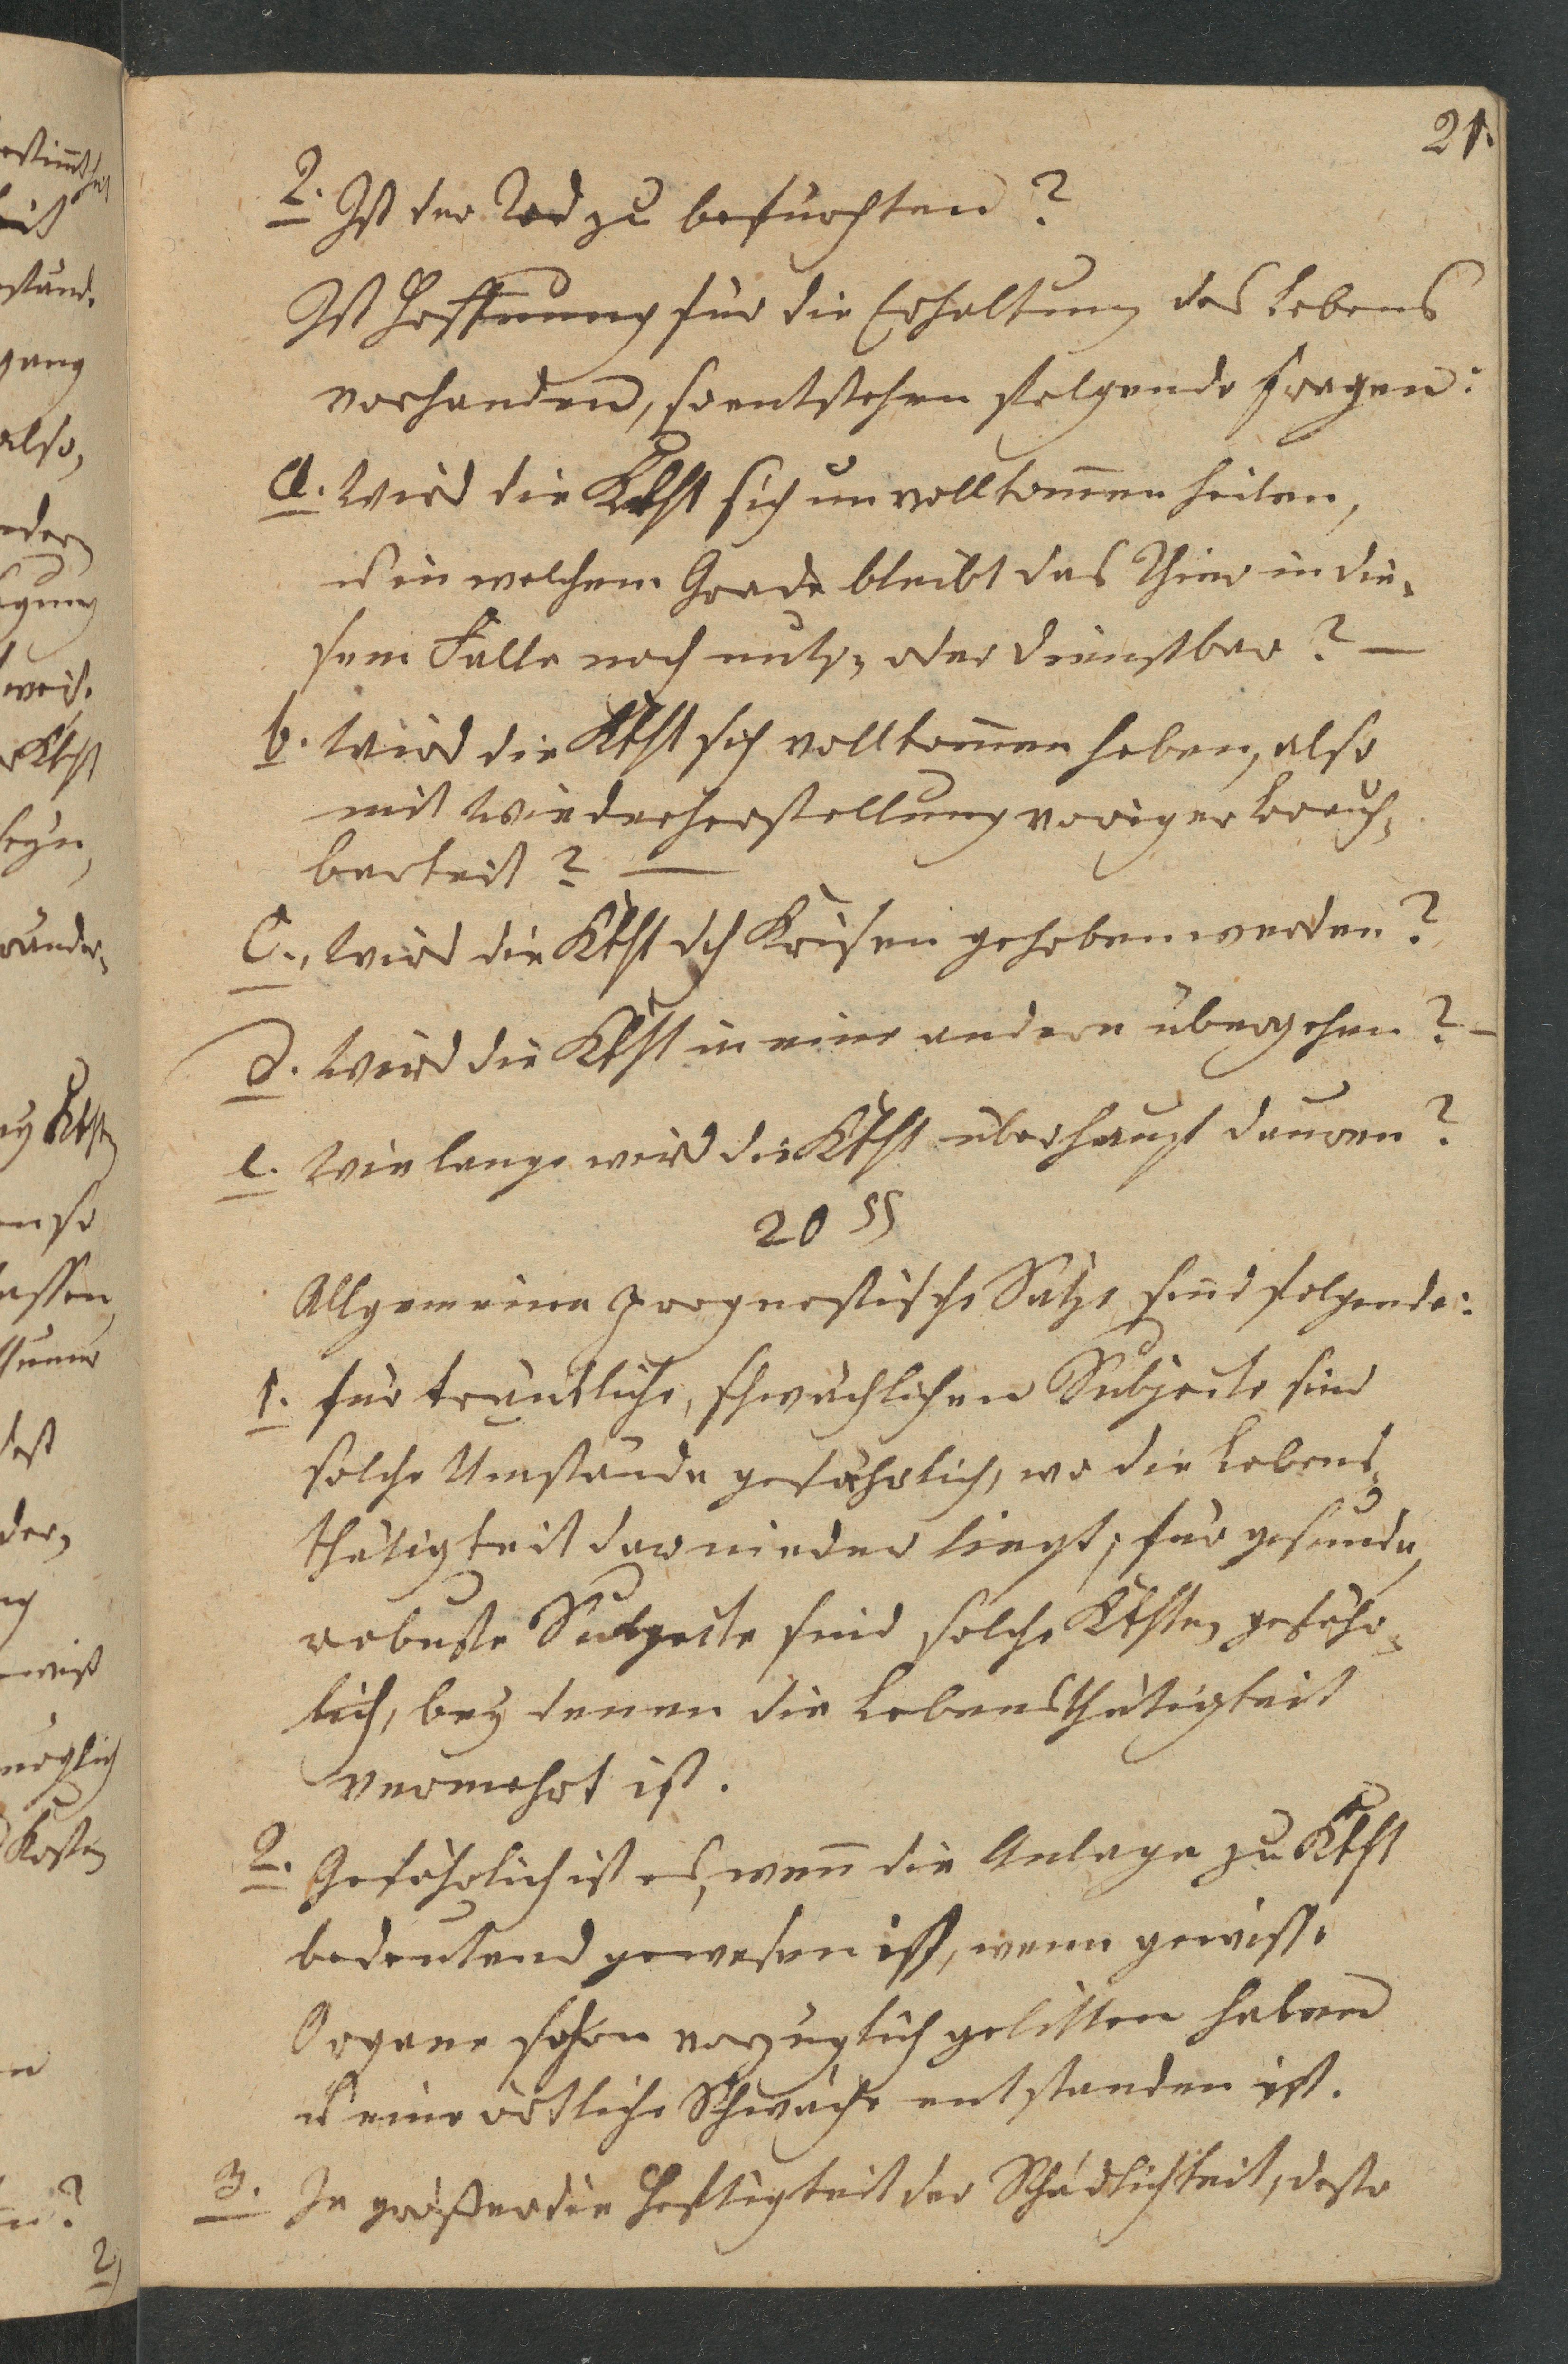 21.
2. Ist der Tod zu befürchten?
Ist Hoffnung für die Erhaltung des Lebens
vorhanden, so entstehen folgende Fragen:
a. Wird die Kkht sich unvollkom̅en heilen,
u in welchem Grade bleibt das Thier in die-
sem Falle noch nutz- oder dienstbar? —
b. Wird die Kkht sich vollkom̅en heben, also
mit Wiederherstellung voriger Brauch-
barkeit? —
c. Wird die Kkht dch Krisen gehoben werden?
d. Wird die Kkht in eine andere übergehen? —
e. Wie lange wird die Kkht überhaupt dauren?
20 §§
Allgemeine prognostische Sätze sind folgende:
1. für kränkliche, schwächlichen Subjecte sind
solche Umstände gefährlich, wo die Lebens-
thätigkeit darnieder liegt; für gesunde,
robuste Subjecte sind solche Kkhten gefähr-
lich, bey denen die Lebensthätigkeit
vermehrt ist.
2. Gefährlich ist es, wen̅ die Anlage zu Kkht
bedeutend gewesen ist, wenn gewisse
Organe schon vorzüglich gelitten haben
u eine örtliche Schwäche entstanden ist.
3. Je größer die Heftigkeit der Schädlichkeit, desto